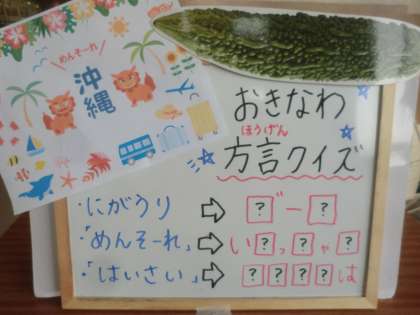 めんそーれ
沖縄
おきなわ
ほうげん
方言クイズ
・にがうり ⇨ ?゛ー?
・「めんそーれ」⇨ い?っ?ゃ?
・「はいさい」⇨ ????は